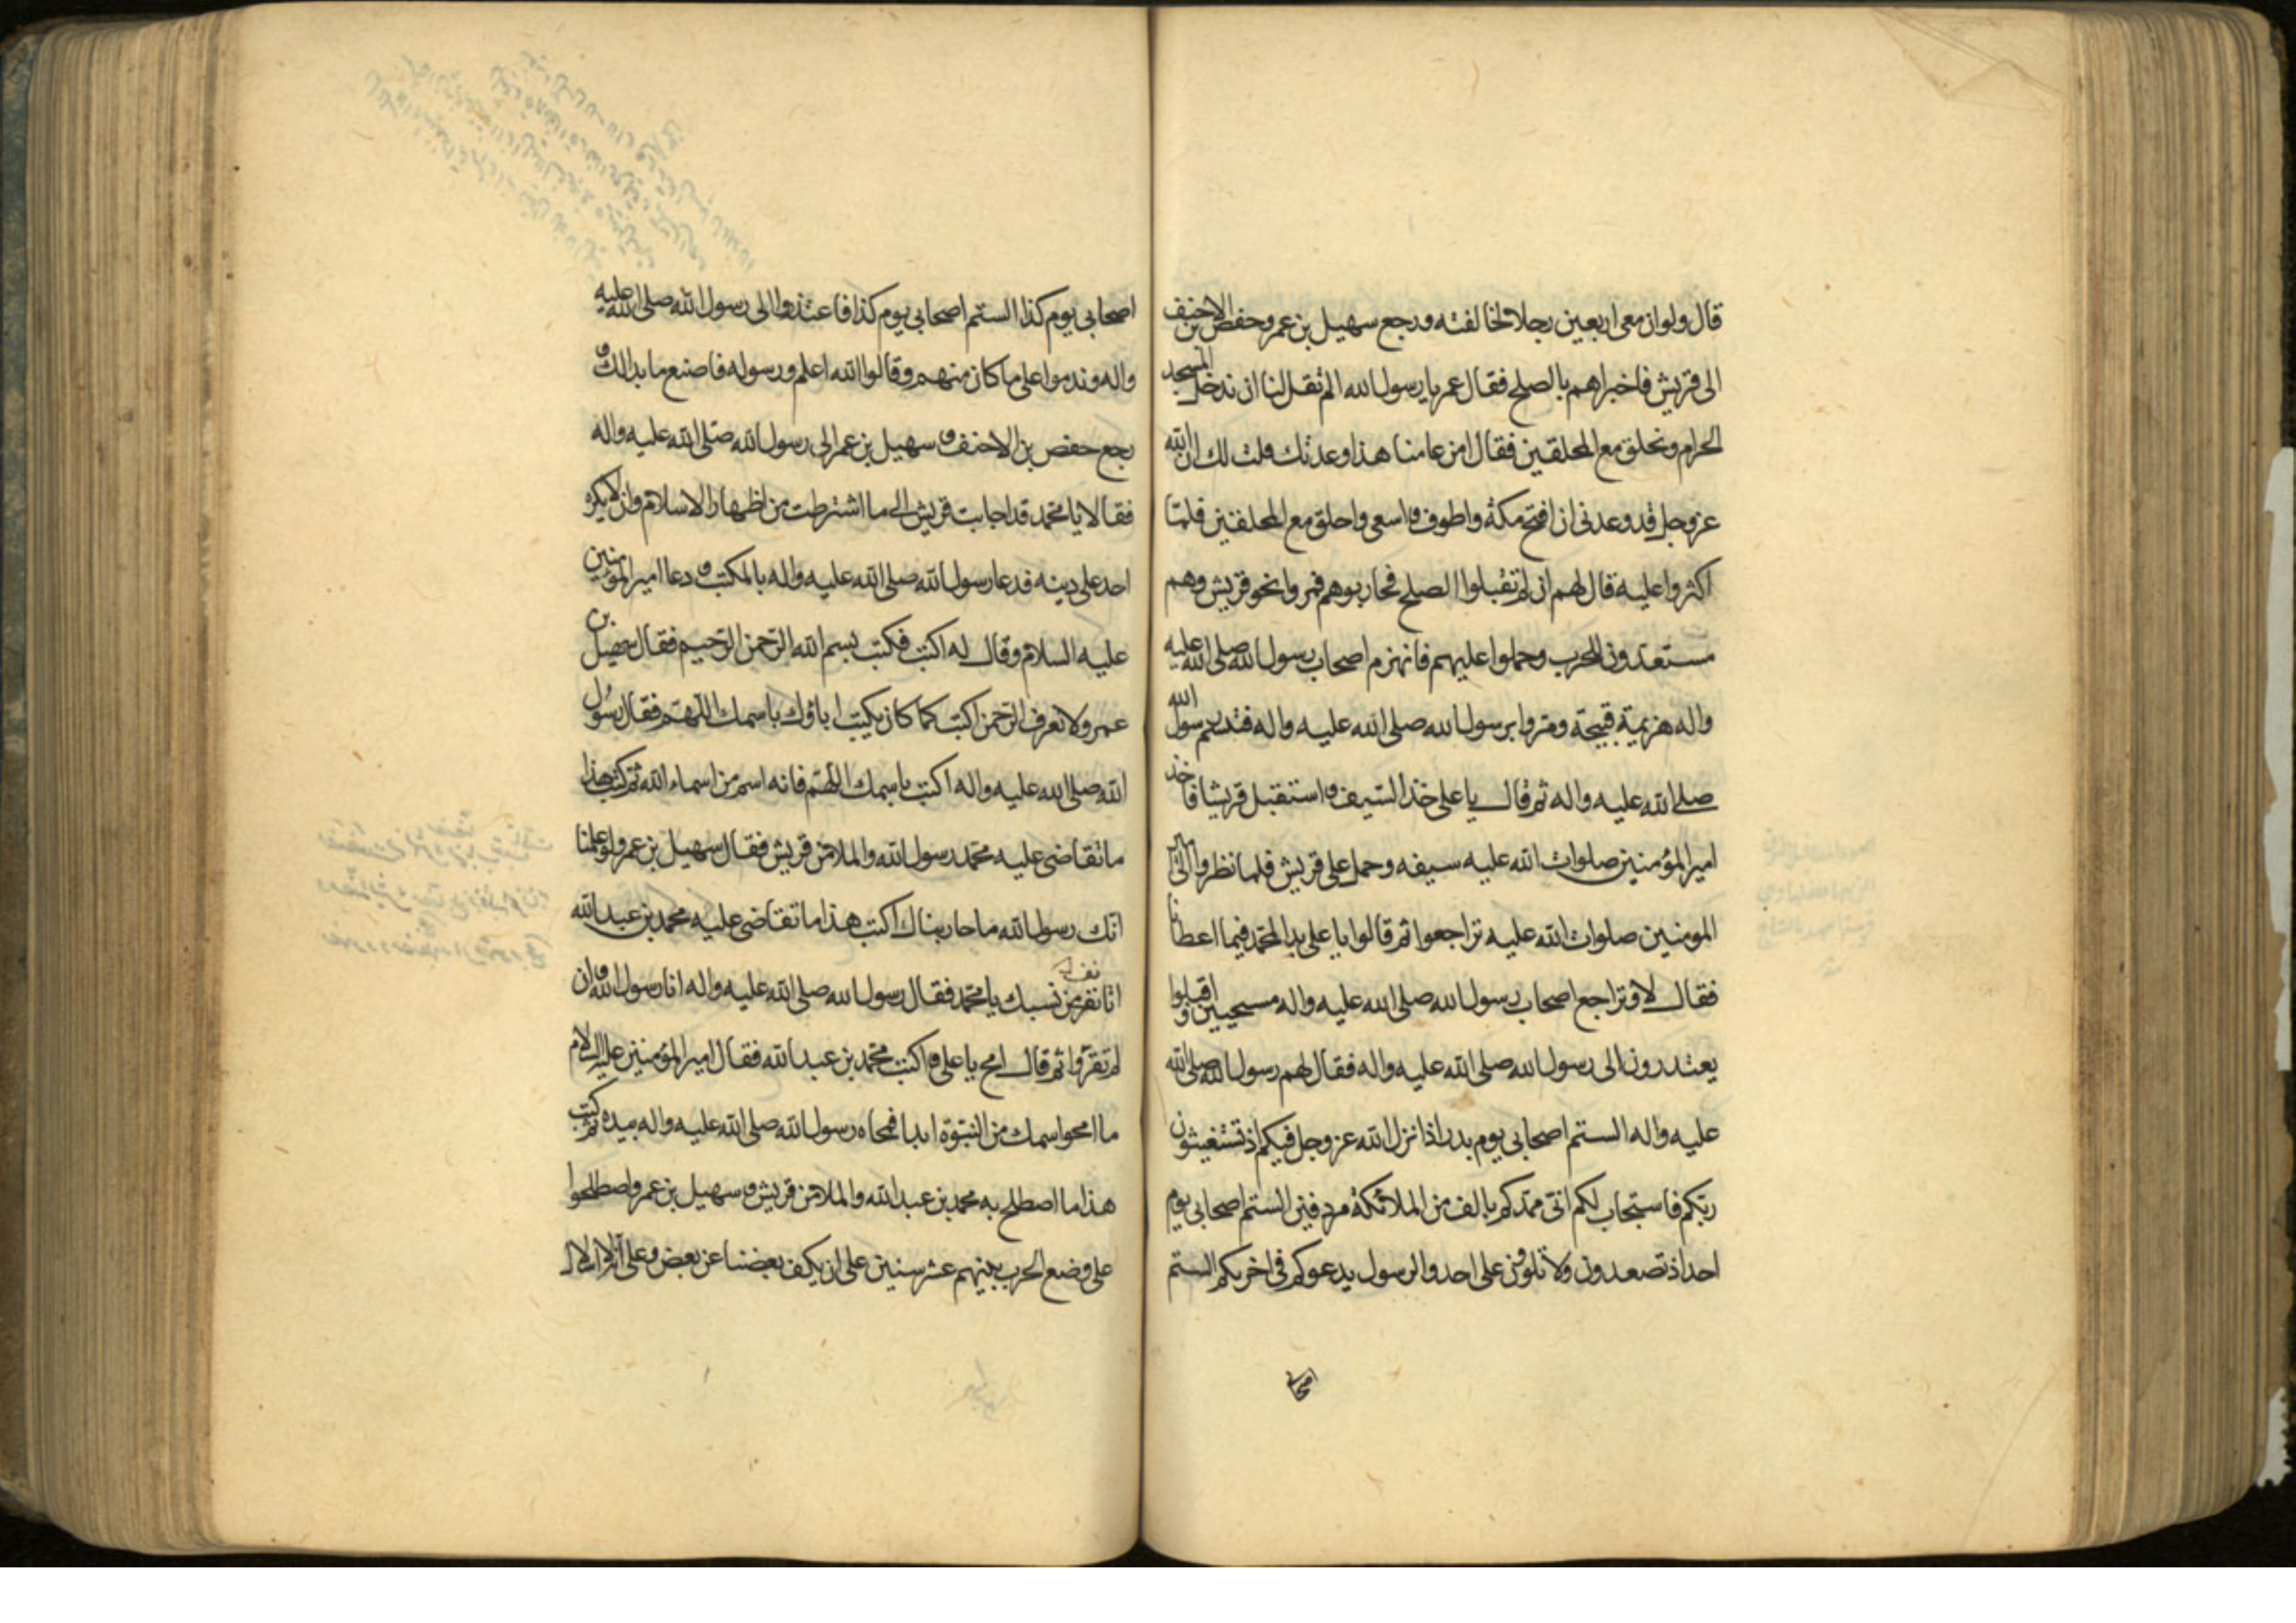 قال ولو ان معى اربعين رجلا لخالفته ورجع سهيل بن عمر وحفص بن الاحنف
الى قريش فاخبراهم بالصلح فقال عمر يا رسول الله الم تقل لنا ان ندخل المسجد
الحرام ونحلق مع المحلقين فقال امن عامنا هذا وعدتك قلت لك ان الله
عز وجل قد وعدنى ان افتح مكة واطوف واسعى واحلق مع المحلقين فلما
اكثروا عليه قال لهم ان لم تقبلوا الصلح فحاربوهم فمروا نحو قريش وهم
مستعدون للحرب وحملوا عليهم فانهزم اصحاب رسول الله صلى الله عليه
واله هزيمة قبيحة ومروا برسول الله صلى الله عليه واله فتبسم رسول الله
صلى الله عليه واله ثم قال يا على خذ السيف واستقبل قريشا فاخذ
امير المؤمنين صلوات الله عليه سيفه وحمل على قريش فلما نظروا الى امير
المومنين صلوات الله عليه تراجعوا ثم قالوا يا على بدا لمحمد فيما اعطانا
فقال لا وتراجع اصحاب رسول الله صلى الله عليه واله مسحيين واقبلوا
يعتدرون الى رسول الله صلى الله عليه واله فقال لهم رسول الله صلى الله
عليه واله الستم اصحابى يوم بدر اذ انزل الله عز وجل فيكم اذ تستغيثون
ربكم فاستجاب لكم انى ممدكم بالف من الملائكة مردفين الستم اصحابى يوم
احد اذ تصعدون ولا تلون على احد والرسول يدعوكم فى اخريكم الستم
اصحابى
اصحابى يوم كذا الستم اصحابى يوم كذا فاعتذروا الى رسول الله صلى الله عليه
واله وندموا على ما كان منهم وقالوا الله اعلم ورسوله فاصنع ما بدا لك و
رجع حفص بن الاحنف و سهيل بن عمر الى رسول الله صلى الله عليه واله
فقالا يا محمد قد اجابت قريش الى ما اشترطت من اظهار الاسلام وان لا يكره
احد على دينه فدعا رسول الله صلى الله عليه واله بالمكتب و دعا امير المؤمنين
عليه السلام وقال له اكتب فكتب بسم الله الرحمن الرحيم فقال سهيل بن
عمر ولا نعرف الرحمن اكتب كما كان يكتب اباؤك باسمك اللهم فقال رسول
الله صلى الله عليه واله اكتب باسمك اللهم فانه اسم من اسماء الله ثم كتب هذا
ما تقاضى عليه محمد رسول الله والملا من قريش فقال سهيل بن عمر ولو علمنا
انك رسول الله ما حاربناك اكتب هذا ما تقاضى عليه محمد بن عبد الله
اتانف من نسبك يا محمد فقال رسول الله صلى الله عليه واله انا رسول الله وان
لم تقروا ثم قال امح يا على واكتب محمد بن عبد الله فقال امير المؤمنين عليه السلام
ما امحو اسمك من النبوة ابدا فمحاه رسول الله صلى الله عليه واله بيده ثم كتب
هذا ما اصطلح به محمد بن عبد الله والملا من قريش و سهيل بن عمر واصطلحوا
على وضع الحرب بينهم عشر سنين على ان يكف بعضنا عن بعض وعلى انه لا اسلال